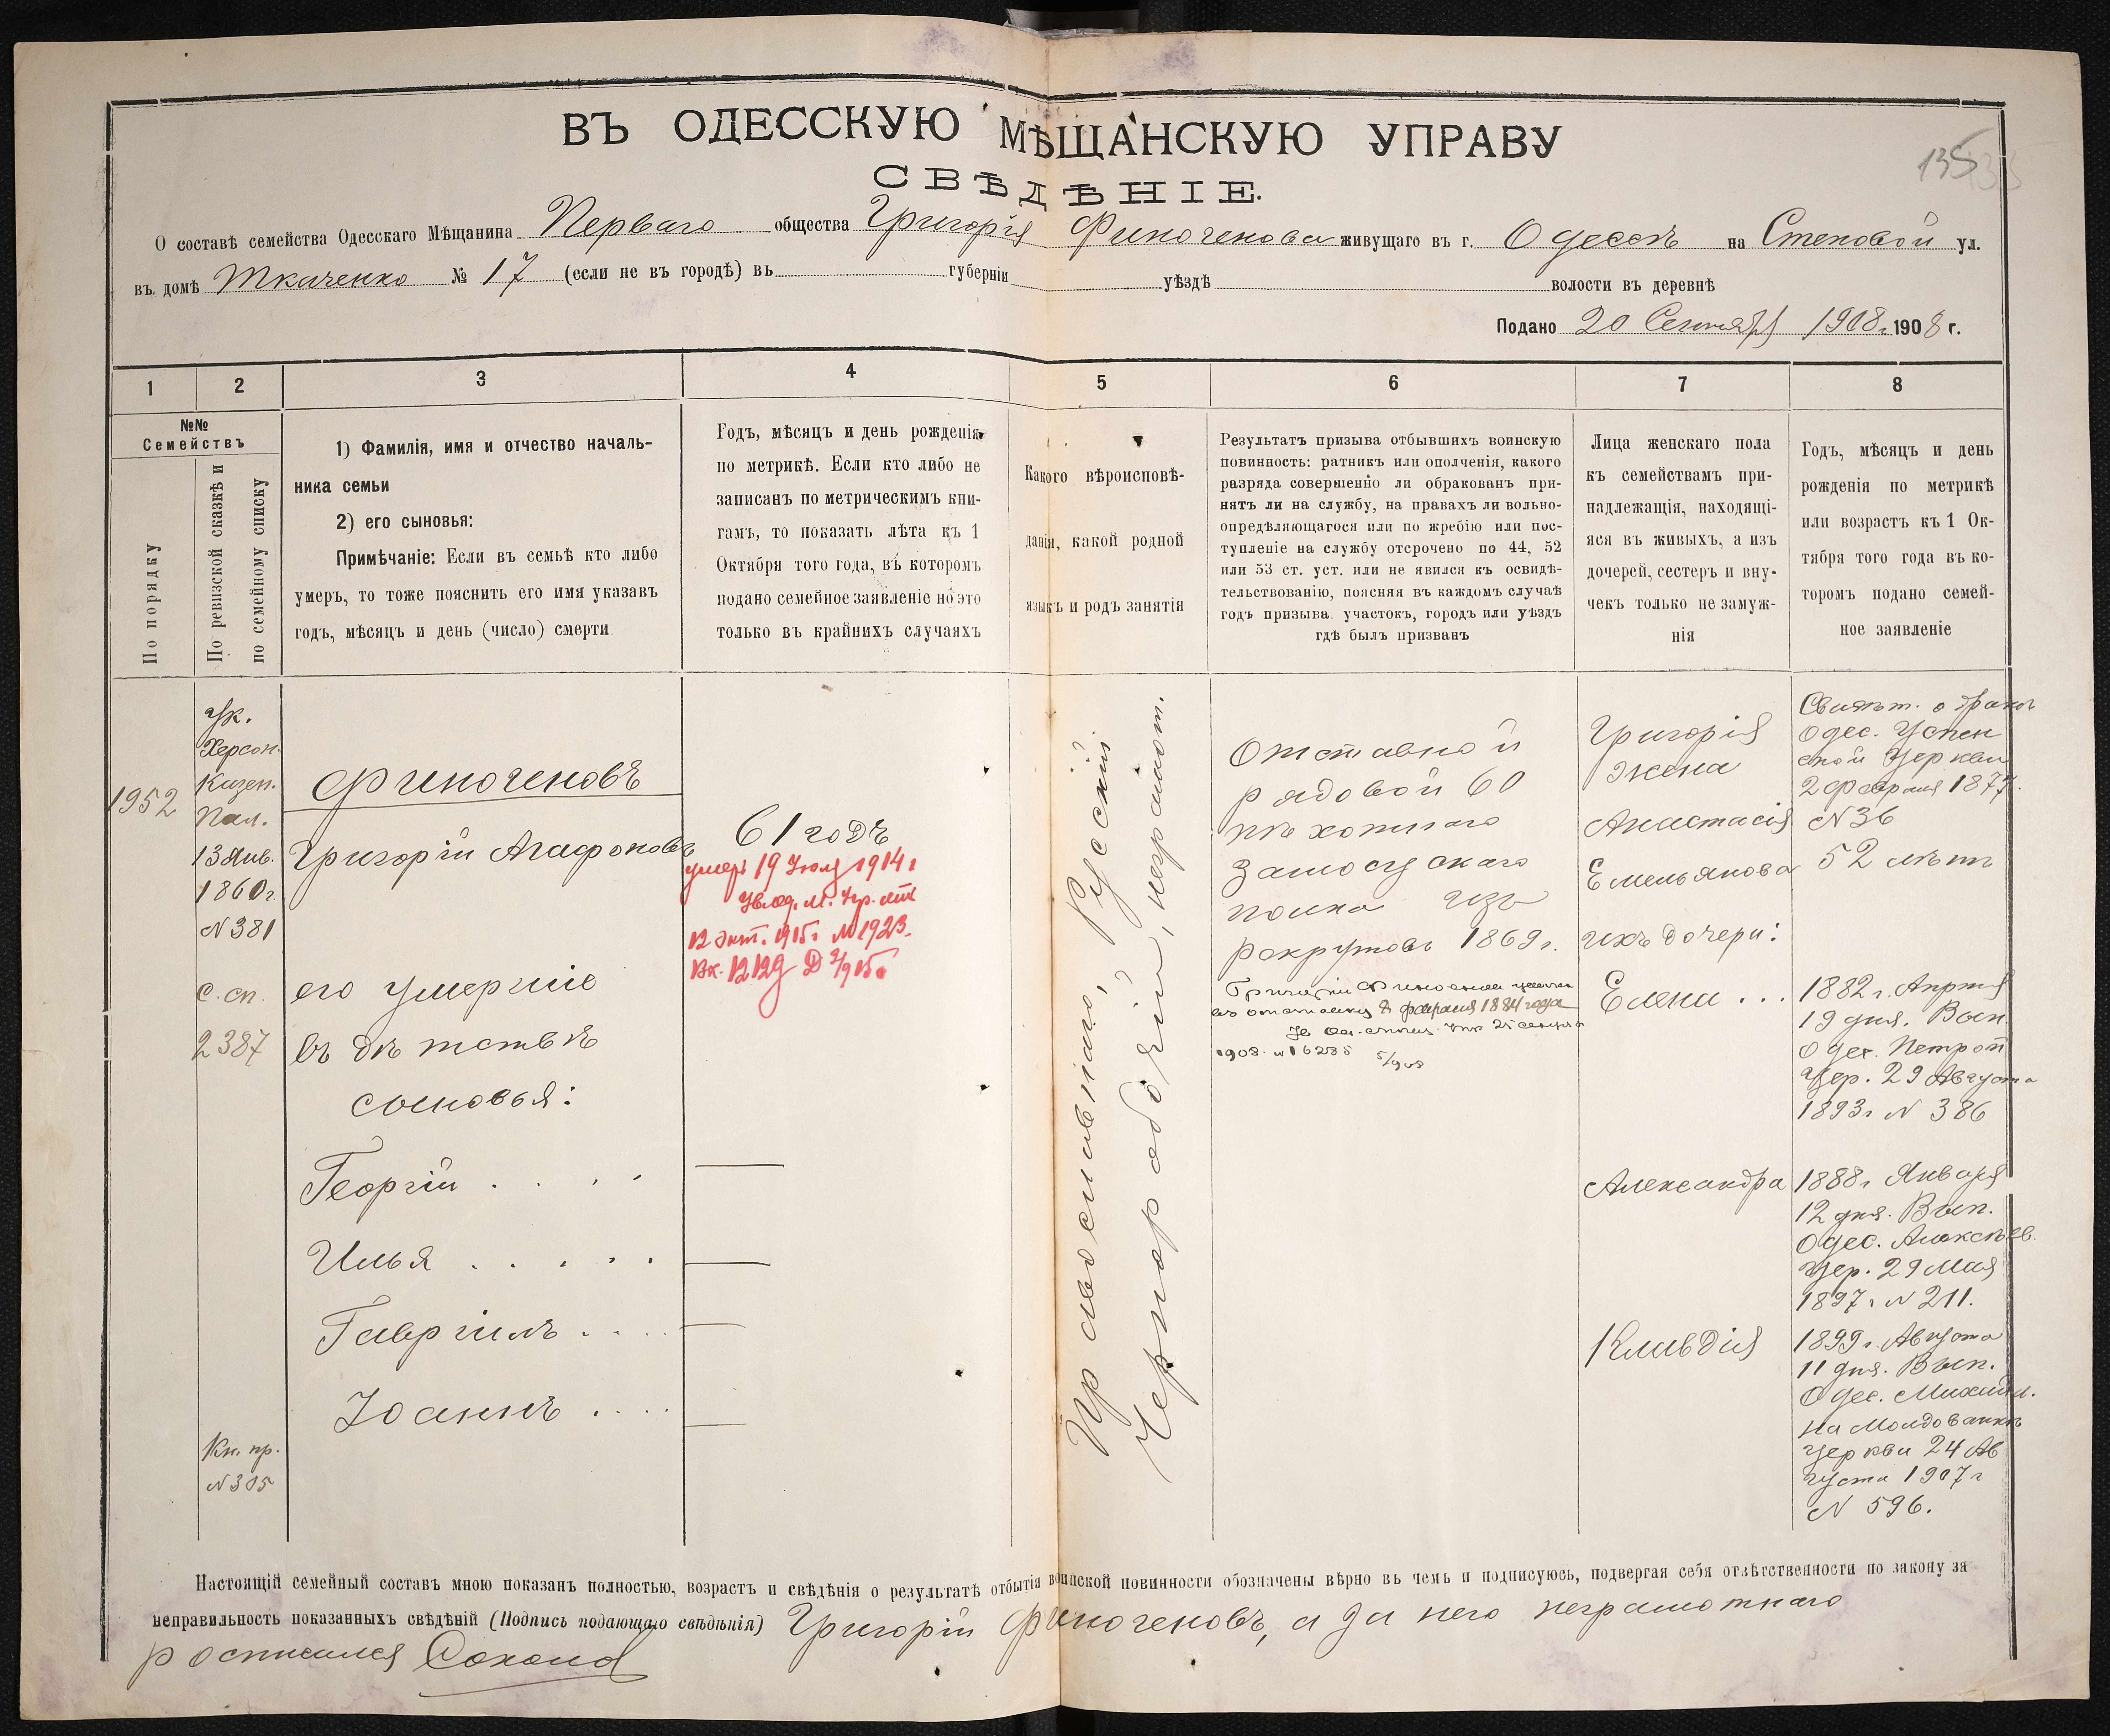 135
ВЪ ОДЕССКУЮ МѢЩАНСКУЮ УПРАВУ
СВѢДѢНІЕ.
О составѣ семейства Одесскаго Мѣщанина Перваго общества Григорія Финогенова живущаго въ г. Одессѣ на Степовой ул.
въ домѣ Ткаченко № 17 (если не въ городѣ) въ губерніи уѣздѣ волости въ деревнѣ
Подано 20 Сентября 1908 г. 1908 г.
1 2 3 4 5 6 7 8
№№
Семействъ
По порядку
По ревизской сказкѣ и
по семейному списку
1) Фамилія, имя и отчество началь-
ника семьи
2) его сыновья:
Примѣчаніе: Если въ семьѣ кто либо
умеръ, то тоже пояснить его имя указавъ
годъ, мѣсяцъ и день (число) смерти
Годъ, мѣсяцъ и день рожденія
по метрикѣ. Если кто либо не
записанъ по метрическимъ кни-
гамъ, то показать лѣта къ 1
Октября того года, въ которомъ
подано семейное заявленіе но это
только въ крайнихъ случаяхъ
Какого вѣроисповѣ-
данія, какой родной
языкъ и родъ занятія
Результатъ призыва отбывшихъ воинскую
повинность: ратникъ или ополченія, какого
разряда совершенно ли обракованъ при-
нятъ ли на службу, на правахъ ли вольно-
опредѣляющагося или по жребію или пос-
тупленіе на службу отсрочено по 44, 52
или 53 ст. уст. или не явился къ освидѣ-
тельствованію, поясняя въ каждомъ случаѣ
годъ призыва. участокъ, городъ или уѣздъ
гдѣ былъ призванъ
Лица женскаго пола
къ семействамъ при-
надлежащія, находящі-
яся въ живыхъ, а изъ
дочерей, сестеръ и вну-
чекъ только не замуж-
нія
Годъ, мѣсяцъ и день
рожденія по метрикѣ
или возрастъ къ 1 Ок-
тября того года въ ко-
торомъ подано семей-
ное заявленіе
1952
Ук.
Херсон.
Казен.
Пал.
13 Янв.
1860 г.
№ 381
С. сп.
2387
Кн. пр.
№ 305
Финогеновъ
Григорій Агафоновъ
его умершіе
въ дѣтствѣ
сыновья:
Георгій . . . .
Илья . . . . .
Гавріилъ . . . .
Іоаннъ . . . .
61 годъ
умеръ 19 Іюля 1914 г
12 окт. 1915 г № 1923.
Православнаго, Русскій
Чернорабочій, неграмот.
Отставной
рядовой 60
пѣхотнаго
Замосцскаго
полка изъ
рекрутовъ 1869 г.
въ отставку 8 февраля 1884 года
1908. № 16285
Григорія
жена
Анастасія
Емельянова
ихъ дочери:
Елена . . .
Александра
Клавдія
Свидѣт. о бракѣ
Одес. Успен
ской Церкви
2 Февраля 1877.
№ 36
52 лѣтъ
1882 г. Апрѣля
19 дня. Вып.
Одес. Петроп
Цер. 29 Августа
1893 г № 386
1888 г Января
12 дня. Вып.
Одес. Алексѣев.
Цер. 29 Мая
1897 г № 211.
1899 г. Августа
11 дня. Вып.
Одес. Михаил.
на Молдованкѣ
Церкви 24 Ав
густа 1907 г
№ 596.
Настоящій семейный составъ мною показанъ полностью, возрастъ и свѣдѣнія о результатѣ отбытія воинской повинности обозначены вѣрно въ чемъ и подписуюсь, подвергая себя отвѣтственности по закону за
неправильность показанныхъ свѣдѣній (Подпись подающаго свѣдѣнія) Григорій Финогеновъ, а за него неграмотнаго
росписался